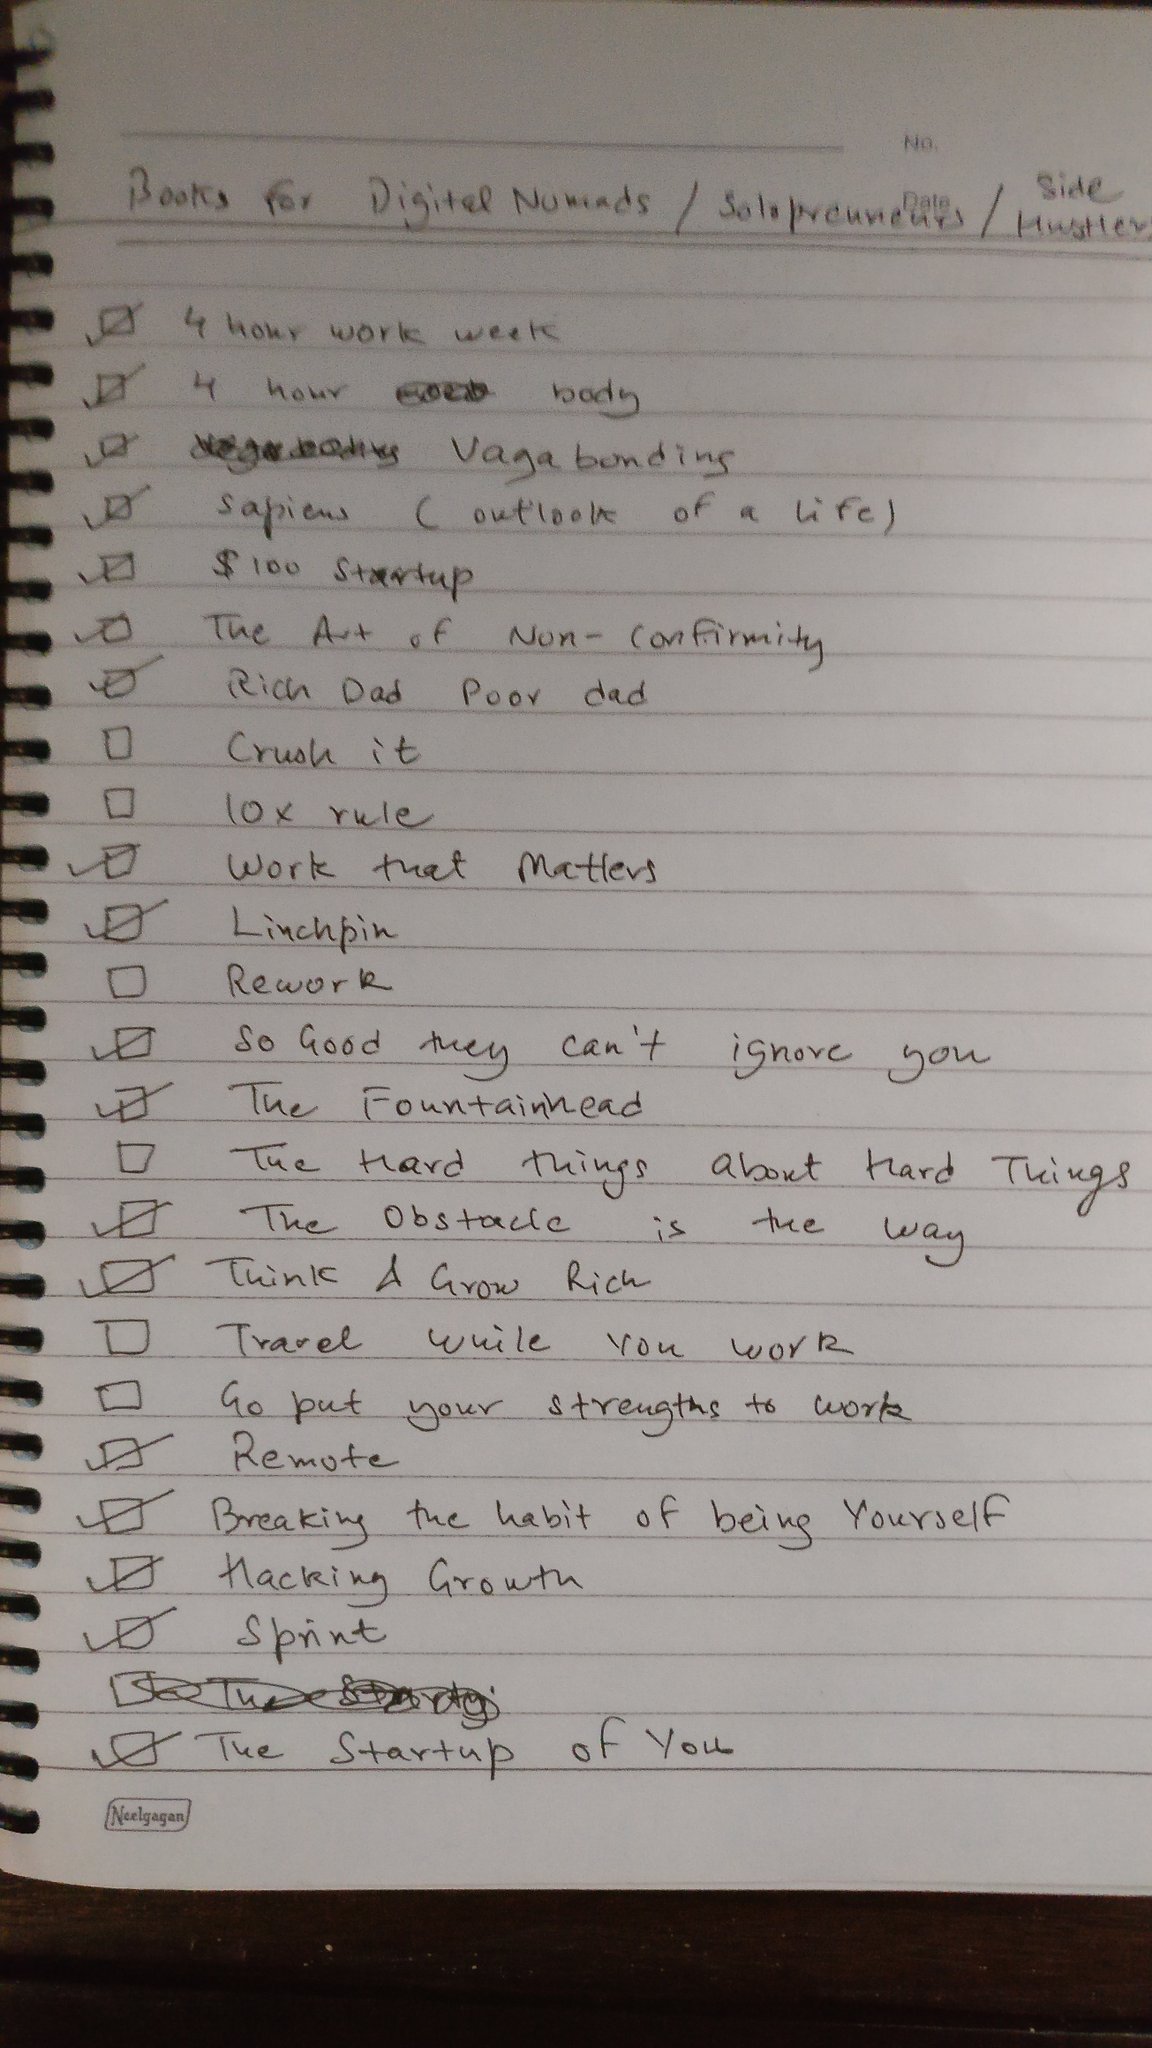 No.
Date
Books for Digital Nomads / Solopreuneurs / Side Hustlers
4 hour work week
4 hour body
Vagabonding
Sapiens (outlook of a life)
$100 Startup
The Art of Non-Confirmity
Rich Dad Poor dad
Crush it
10x rule
Work that Matters
Linchpin
Rework
So Good they can't ignore you
The Fountainhead
The Hard things about Hard Things
The Obstacle is the way
Think & Grow Rich
Travel while you work
Go put your strengths to work
Remote
Breaking the habit of being Yourself
Hacking Growth
Sprint
The Startup of You
Neelgagan